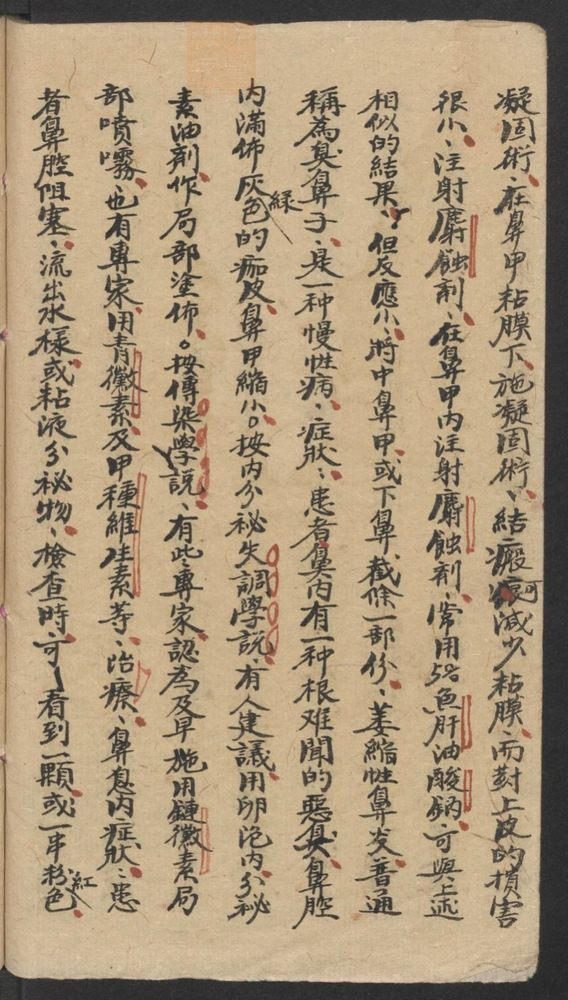 凝固術、在鼻甲粘膜下、施凝固術、結瘢可減少粘膜、而對上皮的損害
很小、注射腐蝕剤、在鼻甲內注射腐蝕剤、常用5%魚肝油酸鈉、可與上述
相似的結果、但反應小、將中鼻甲、或下鼻截除一部份、萎縮性鼻炎、普通
稱為臭鼻子、是一种慢性病、症狀、患者鼻內有一种根难聞的惡臭、鼻腔
內滿佈灰綠色的痂皮、鼻甲縮小。按內分祕失調學說、有人建議、用卵泡內分祕
素油剤、作局部塗佈。按傳染學說、有些專家、認為及早施用鏈黴素局
部噴霧、也有專家、用青黴素、及甲種維生素等、治療、鼻息肉症狀、患
者鼻腔阻塞、流出水樣或粘液分祕物、檢查時、可看到一顆、或一串粉紅色